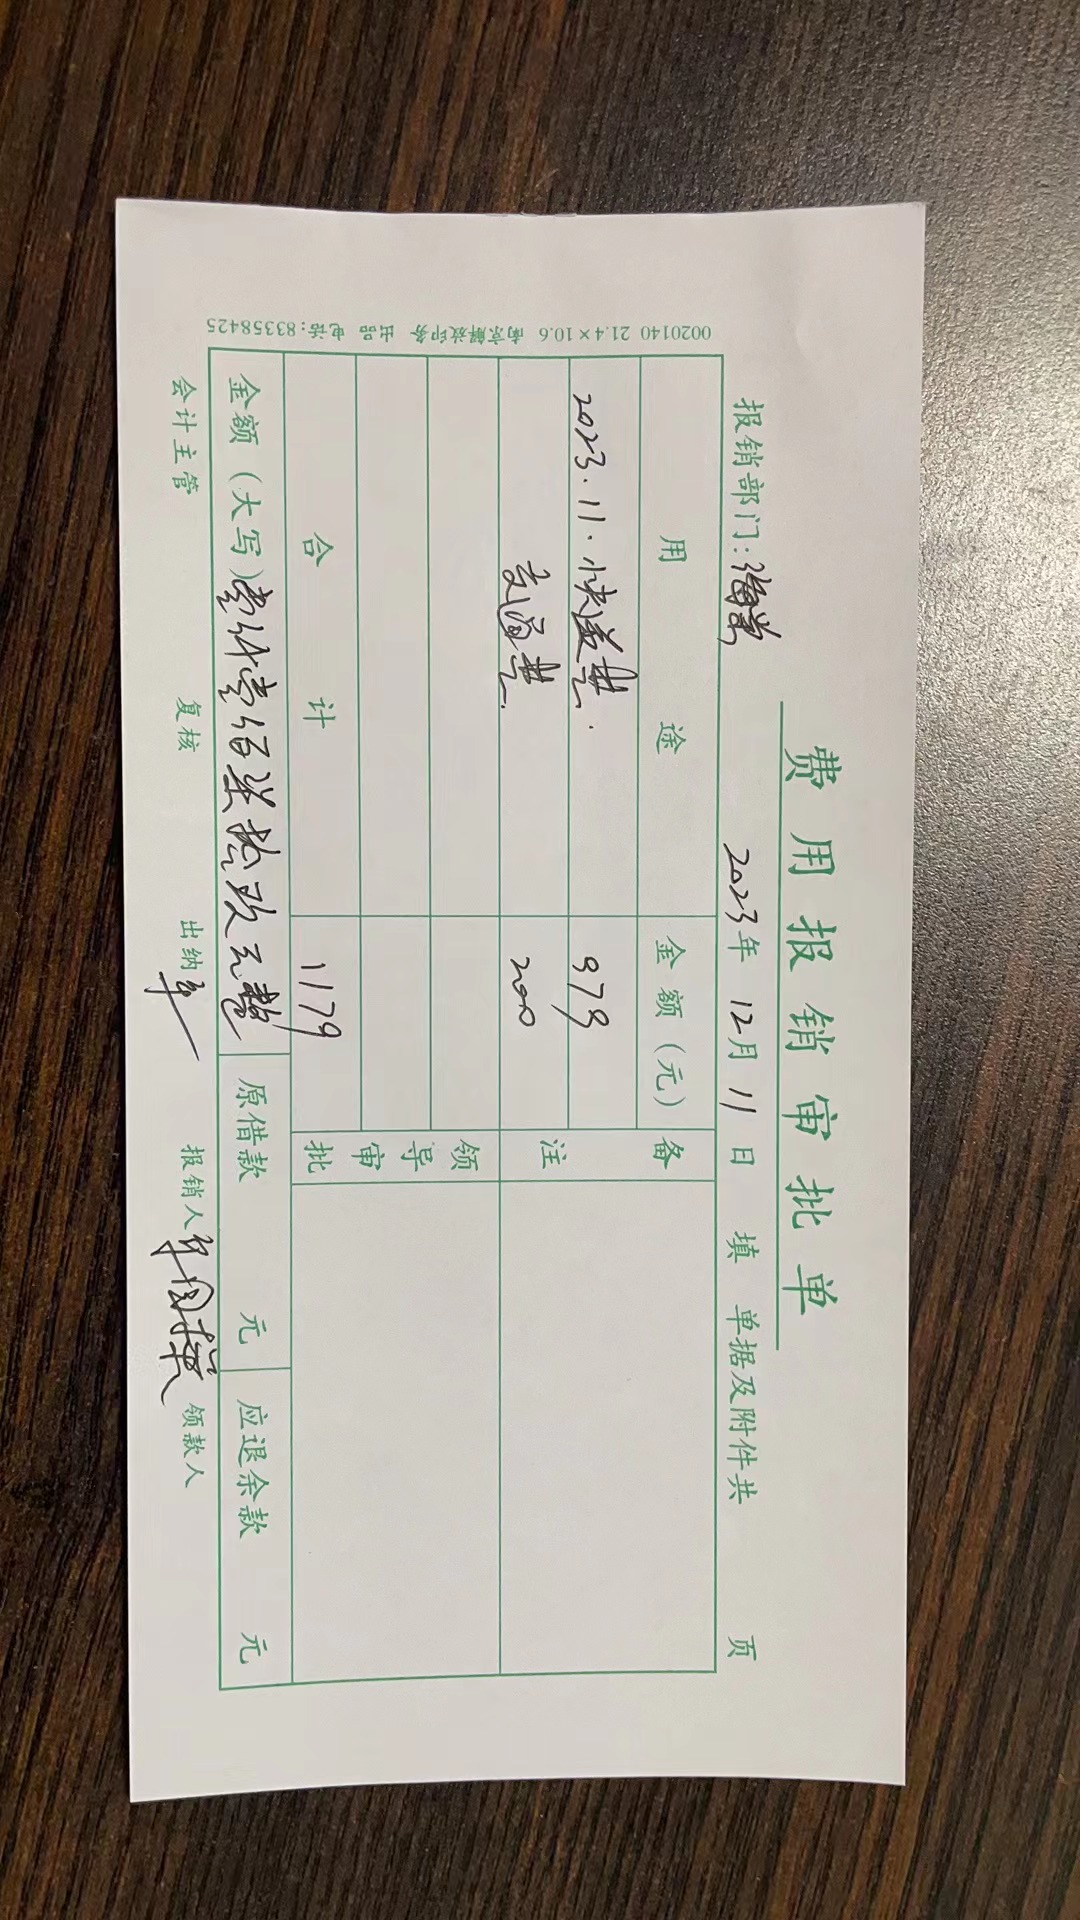 费用报销审批单
报销部门: 2023年 12月 11日 填 单据及附件共 页
用途 金额(元) 备注
2023.11.快递费. 979
交通费. 200
领导审批
合计 1179
金额(大写)壹仟壹佰柒拾玖元整 原借款 元 应退余款 元
会计主管 复核 出纳 报销人 领款人
0020140 21.4×10.6 南京解放印务 出品 电话:83358425